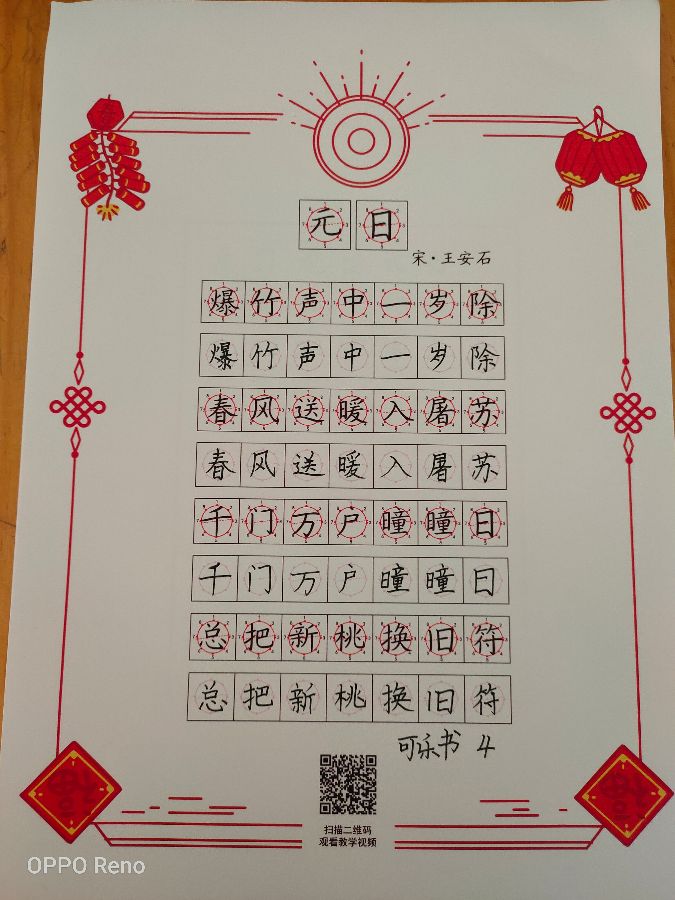 元日
宋·王安石
爆竹声中一岁除
爆竹声中一岁除
春风送暖入屠苏
春风送暖入屠苏
千门万户曈曈日
千门万户曈曈日
总把新桃换旧符
总把新桃换旧符
可乐书 4
扫描二维码
观看教学视频
OPPO Reno